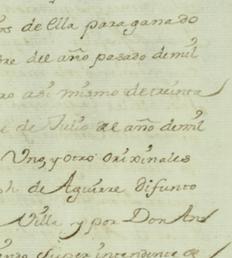 de ella para ganado
del año pasado de mil
asi mismo de treinta
de Julio de el año de mil
Uno, y otro orixinales
de Aguirre difunto
Villa y por Don
Super intendente de